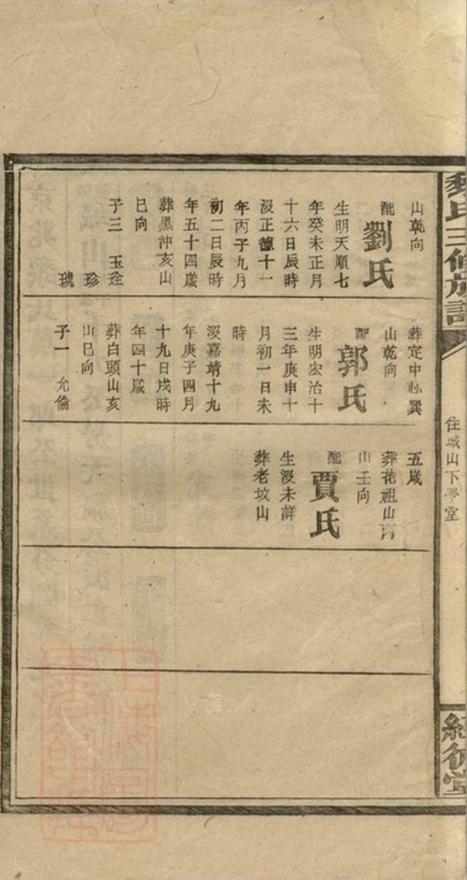 氏三修族譜
住城山下學堂
山乾向
配劉氏
生明天順七
年癸未正月
十六日辰時
沒正德十一
年丙子九月
初二日辰時
年五十四歲
葬黑沖亥山
巳向
子三 玉 珍 琥
葬定中 巽
山乾向
配郭氏
生明宏治十
三年庚申十
月初一日未
時
沒嘉靖十九
年庚子四月
十九日戌時
年四十歲
葬白頭山亥
山巳向
子一 允倫
五歲
葬花祖山丙
山壬向
配賈氏
生沒未詳
葬老坟山